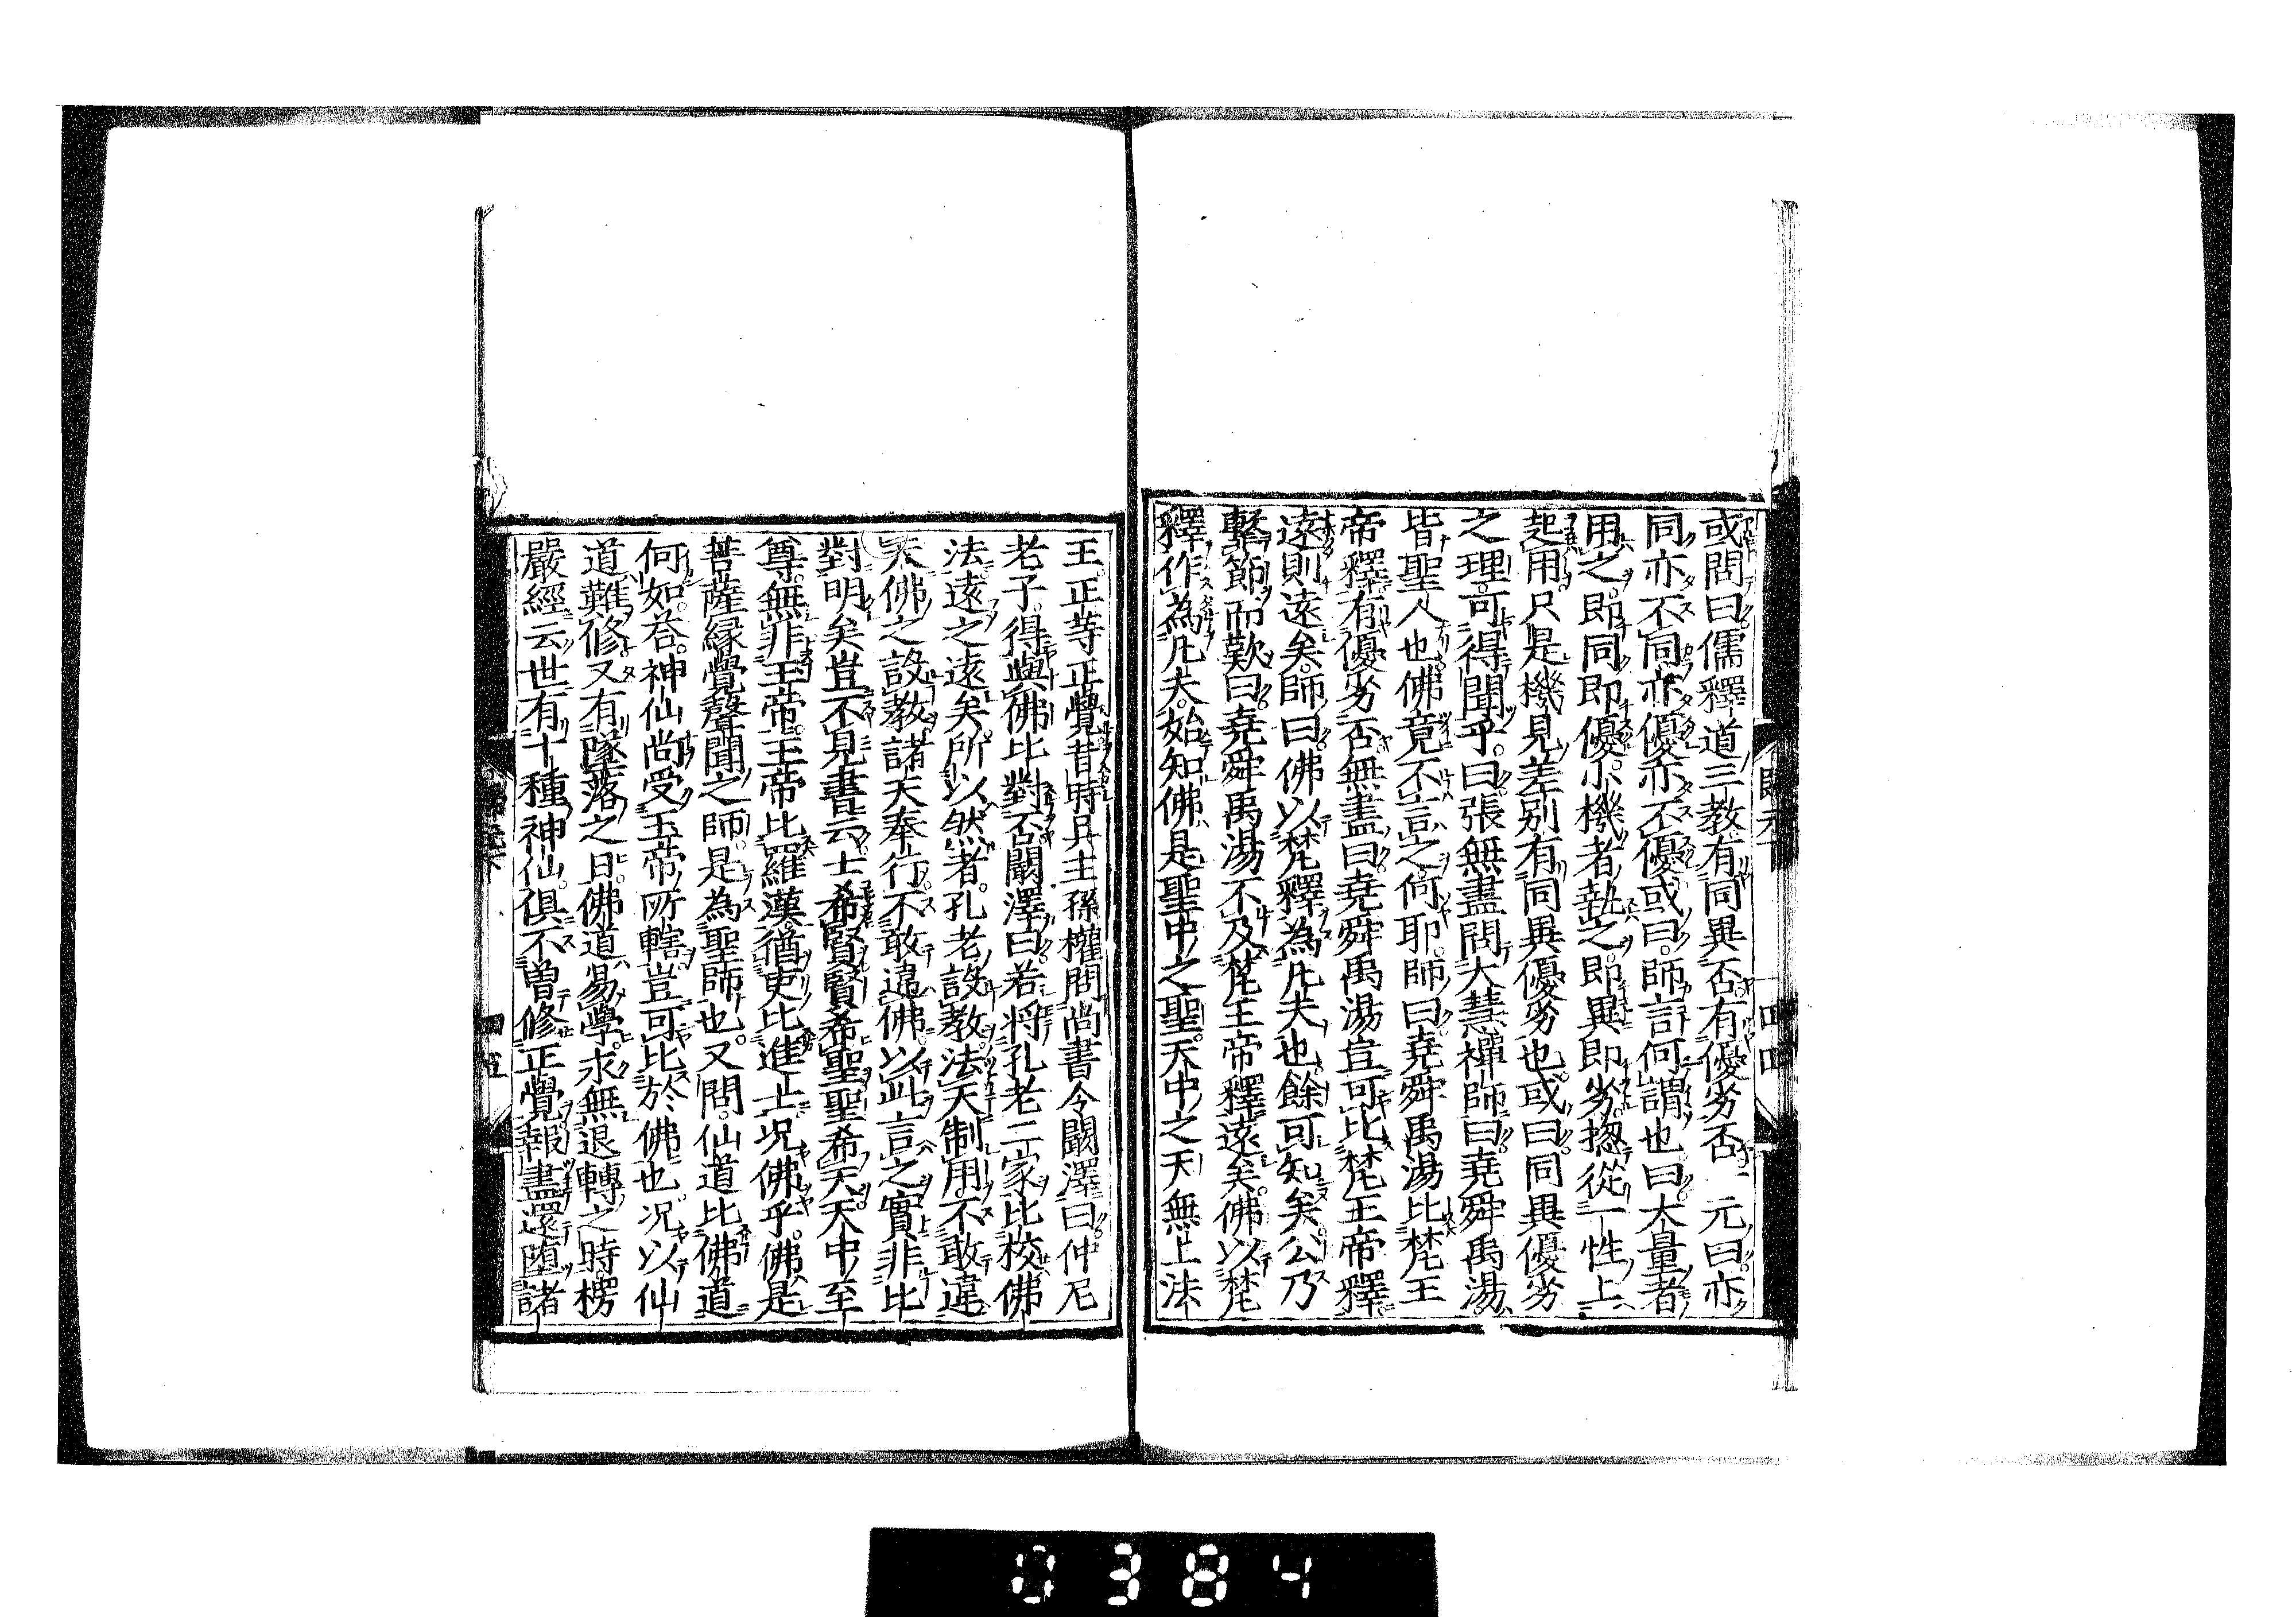 或問曰儒釋道三教有同異否有優劣否 元曰亦
同亦不同亦優亦不優或曰師言何謂也曰大量者
用之即同即優小機者執之即異即劣揔從一性上
起用只是機見差别有同異優劣也或曰同異優劣
之理可得聞乎曰張無盡問大慧禪師曰堯舜禹湯
皆聖人也佛竟不言之何耶師曰堯舜禹湯比梵王
帝釋有優劣否無盡曰堯舜禹湯豈可比梵王帝釋
遠則遠矣師曰佛以梵釋為凡夫也餘可知矣公乃
擊節而歎曰堯舜禹湯不及梵王帝釋遠矣佛以梵
釋作為凡夫始知佛是聖中之聖天中之天無上法
四四
王正等正覺昔時吴主孫權問尚書令闞澤曰仲尼
老子得與佛比對否闞澤曰若將孔老二家比校佛
法遠之遠矣所以然者孔老設教法天制用不敢違
天佛之設教諸天奉行不敢違佛以此言之實非比
對明矣豈不見書云士希賢賢希聖聖希天天中至
尊無非王帝王帝比羅漢猶吏比進士况佛乎佛是
菩薩緣覺聲聞之師是為聖師也又問仙道比佛道
何如荅神仙尚受玉帝所轄豈可比於佛也况以仙
道難修又有墜落之日佛道易學求無退轉之時楞
嚴經云世有十種神仙俱不曾修正覺報盡還墮諸
四五
0384